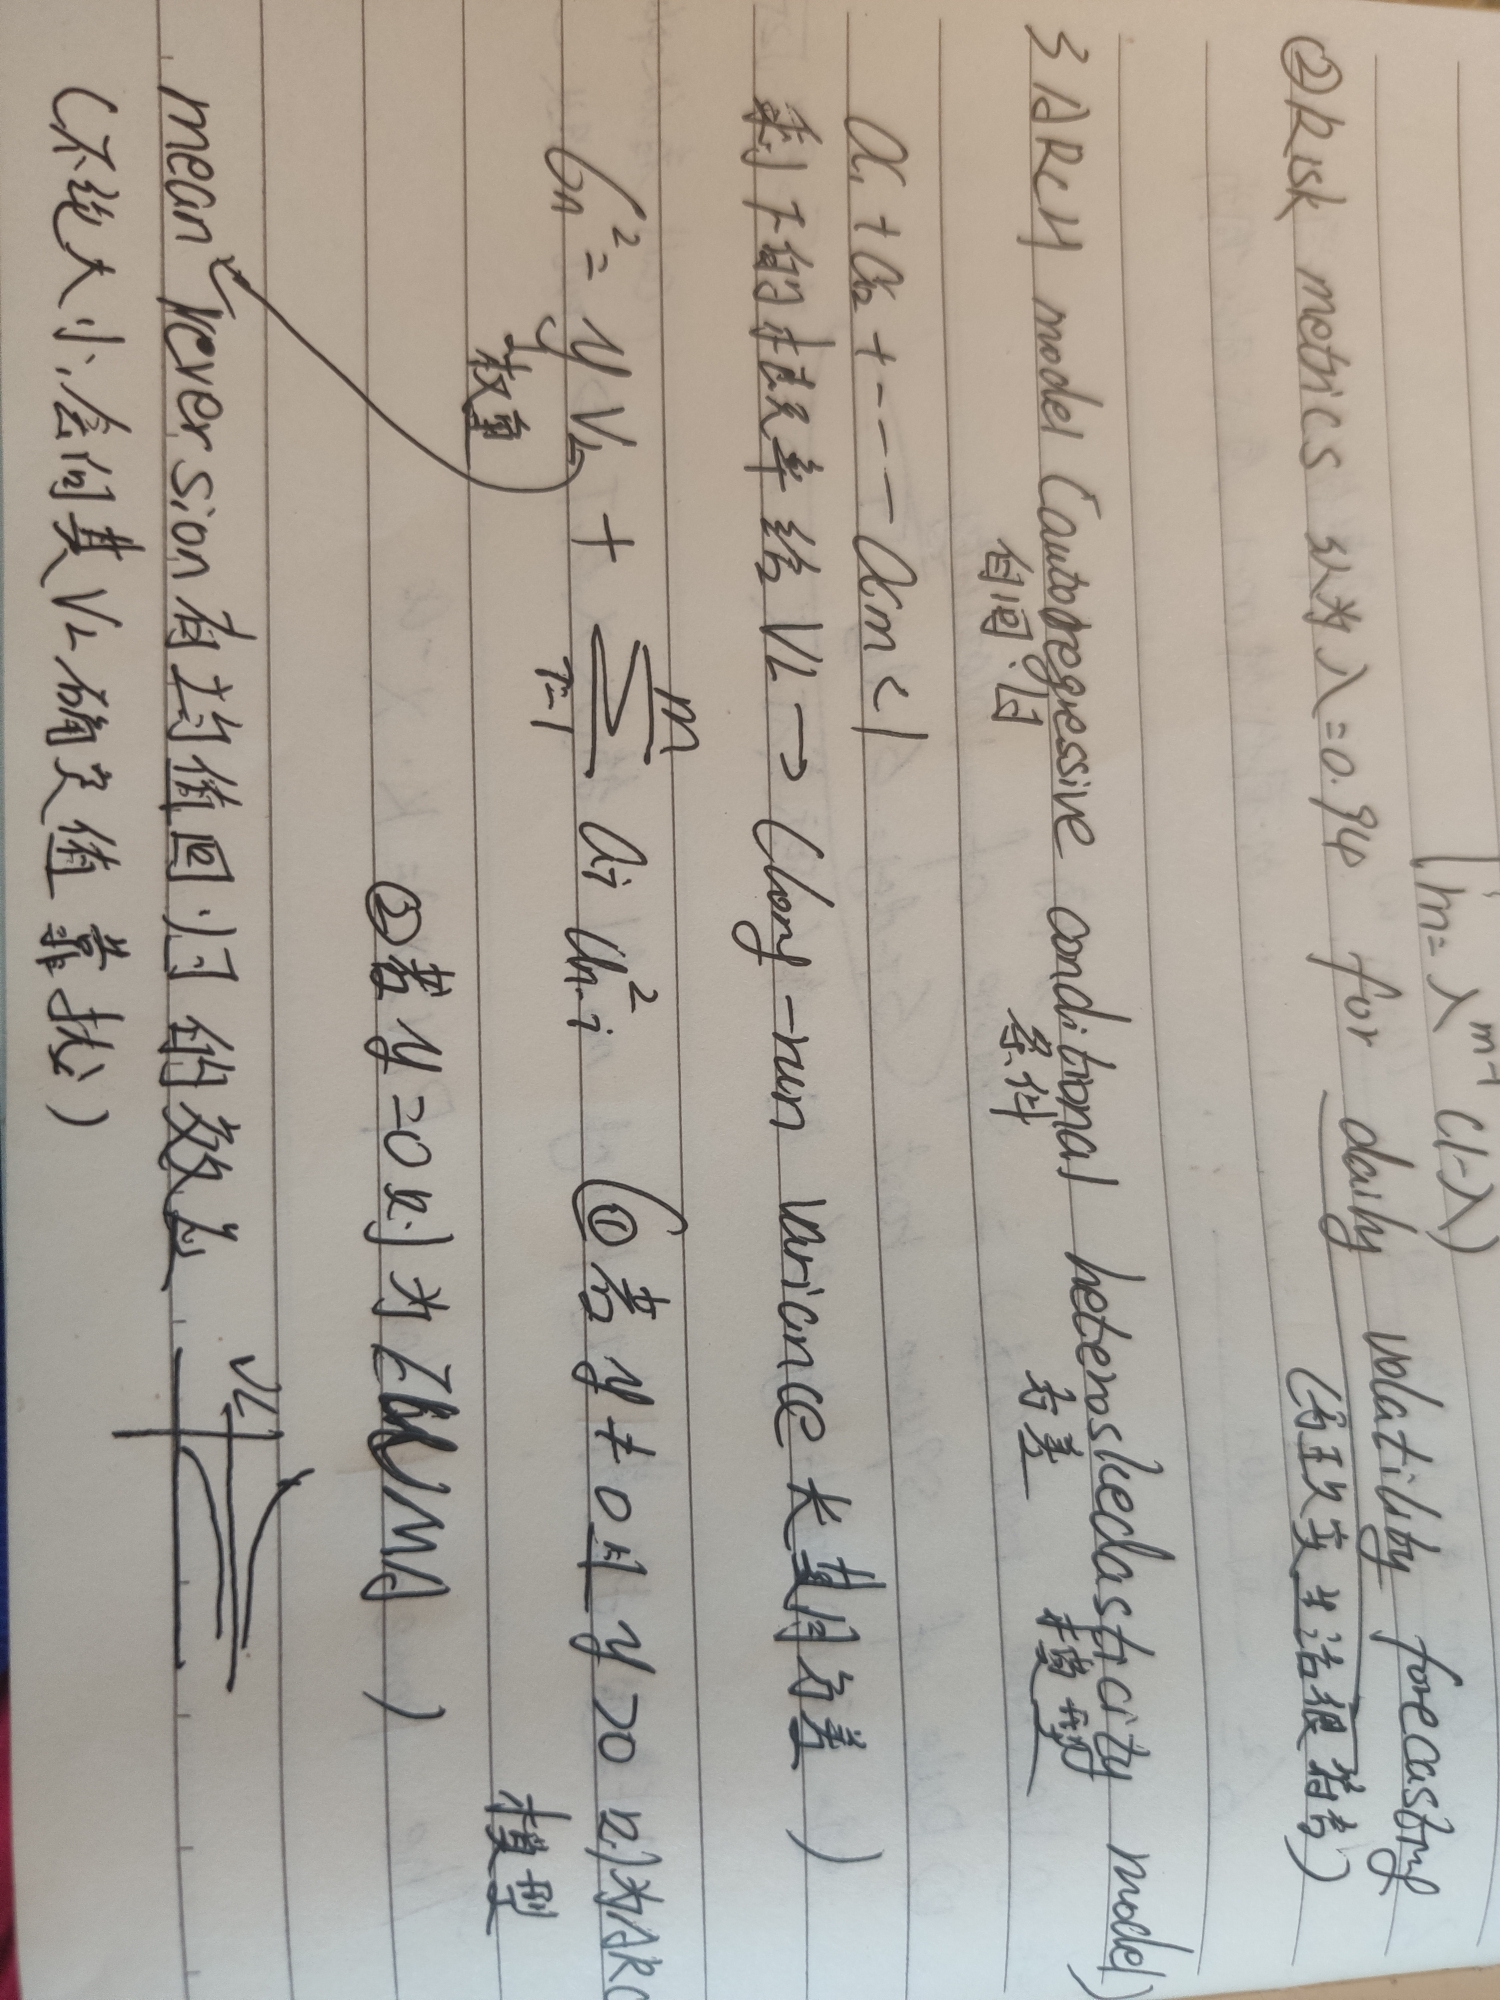 m = λ^(m-1) (1-λ)
② Risk metrics 认为 λ=0.94 for daily volatility forecasting
(与现实生活很符合)
3 ARCH model (autoregressive conditional heteroskedasticity model)
自回归 条件 方差 模型
α₁ + α₂ + --- αm < 1
剩下的权重给 VL → (long-run variance 长期方差)
σn² = γ VL + Σ(i=1, m) αi un-i² (① 若 γ ≠ 0 且 γ>0 则为ARC
权重 模型
② 若 γ=0 则为 EWMA )
mean reversion 有均值回归的效应 VL
(不论大小,会向其VL确定值靠拢)